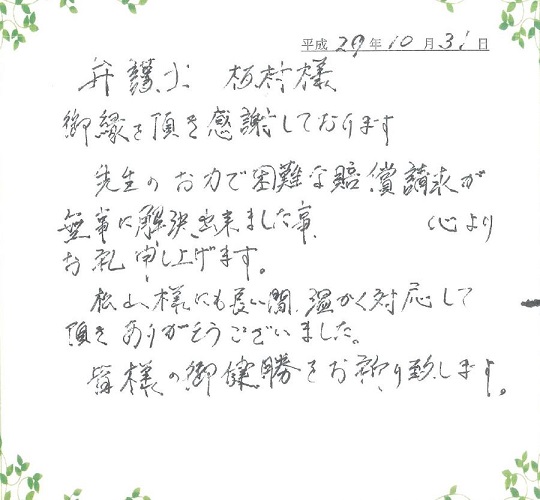 平成 29 年 10 月 31 日
弁護士 板村様
御縁を頂き感謝しております
先生のお力で困難な賠償請求が
無事に解決出来ました事 心より
お礼申し上げます。
松山様にも長い間、温かく対応して
頂きありがとうございました。
皆様の御健勝をお祈り致します。